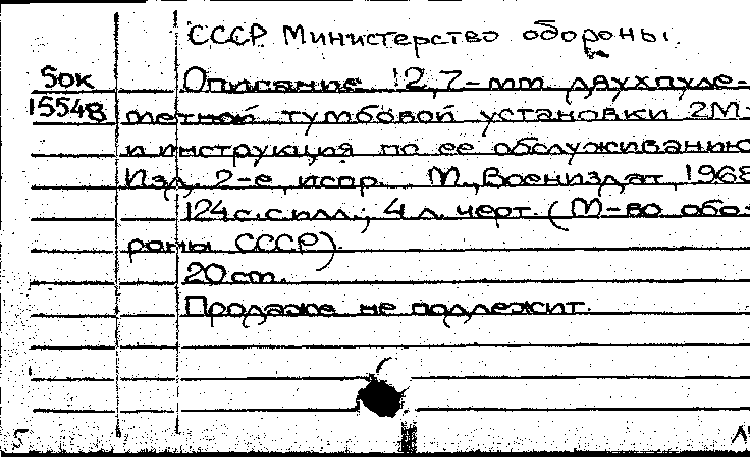 СССР Министерство обороны.
Бок Описание 12,7-мм двухпуле-
15548 метной тумбовой установки 2М-
и инструкция по ее обслуживанию
Изд. 2-е, испр. М., Воениздат, 1968
124 с. с илл.; 4 л. черт. (М-во обо-
роны СССР).
20 cm.
Продаже не подлежит.
5